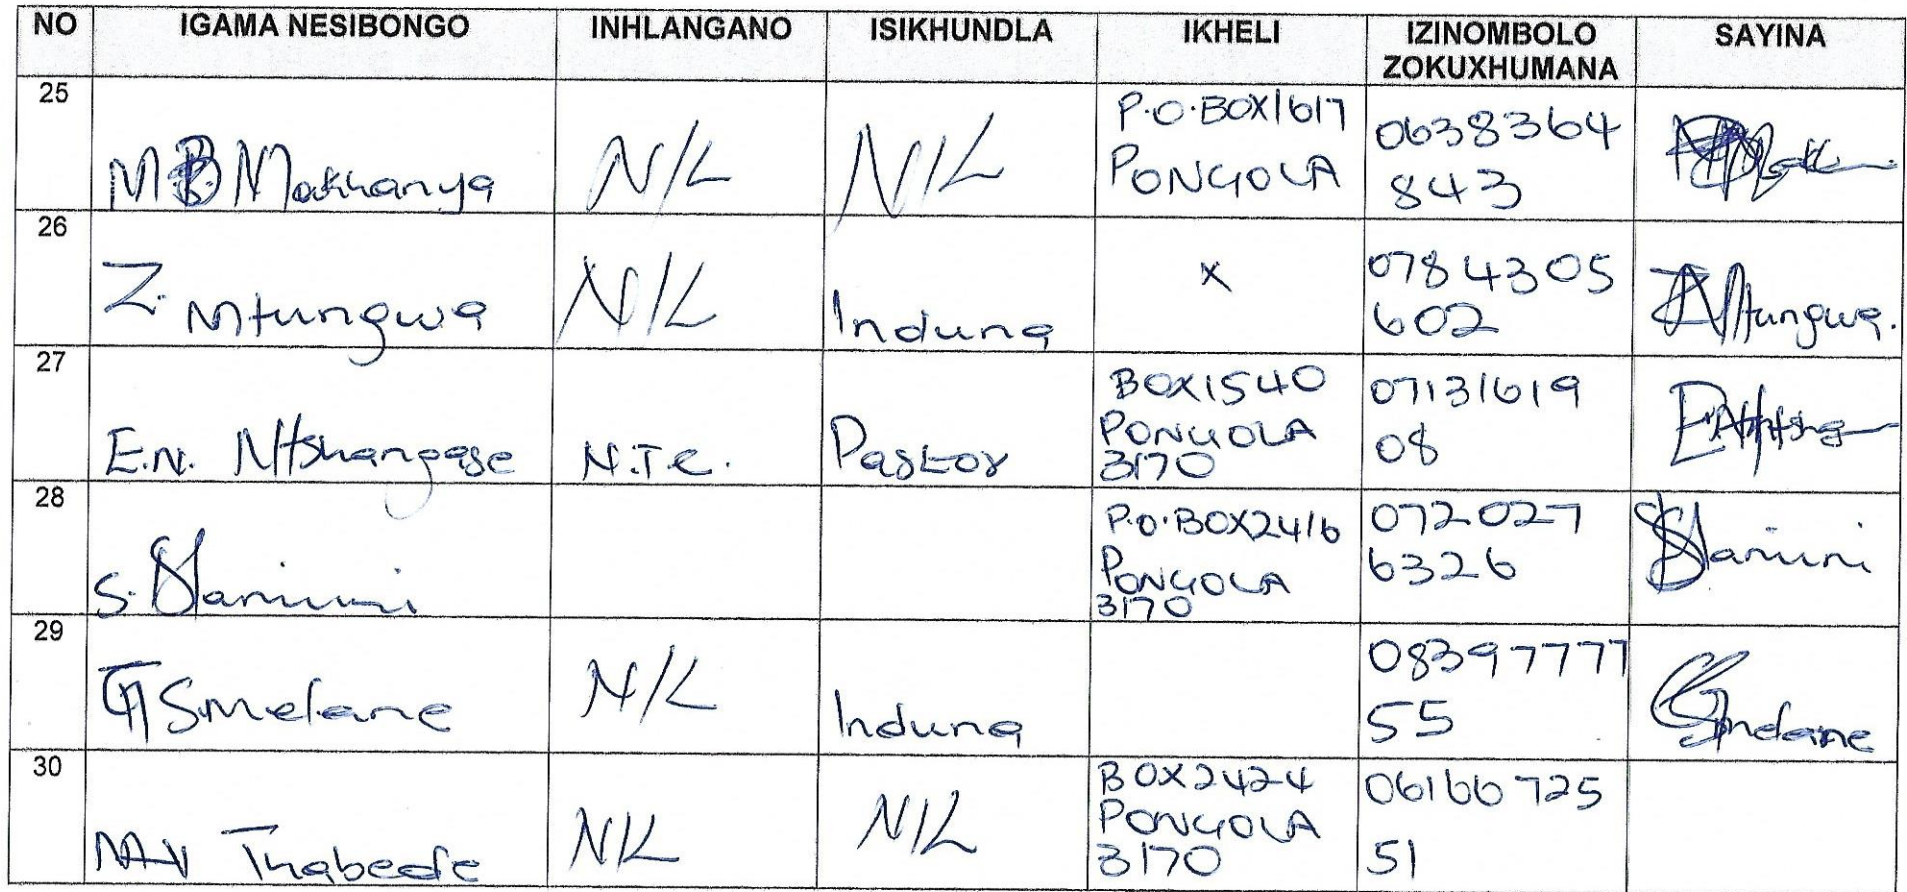 NO IGAMA NESIBONGO INHLANGANO ISIKHUNDLA IKHELI IZINOMBOLO ZOKUXHUMANA SAYINA
25 MB Makhanya N/L N/L P.O.BOX1617 PONGOLA 0638364 843
26 Z. Mtungwa N/L Induna X 0784305 602 Mtungwa.
27 E.N. Ntshangase N.T.C. Pastor BOX1540 PONGOLA 3170 07131619 08
28 S. P.O.BOX2416 PONGOLA 3170 072027 6326
29 Smelane N/L Induna 08397777 55
30 Thabede N/L N/L BOX2424 PONGOLA 3170 06166725 51